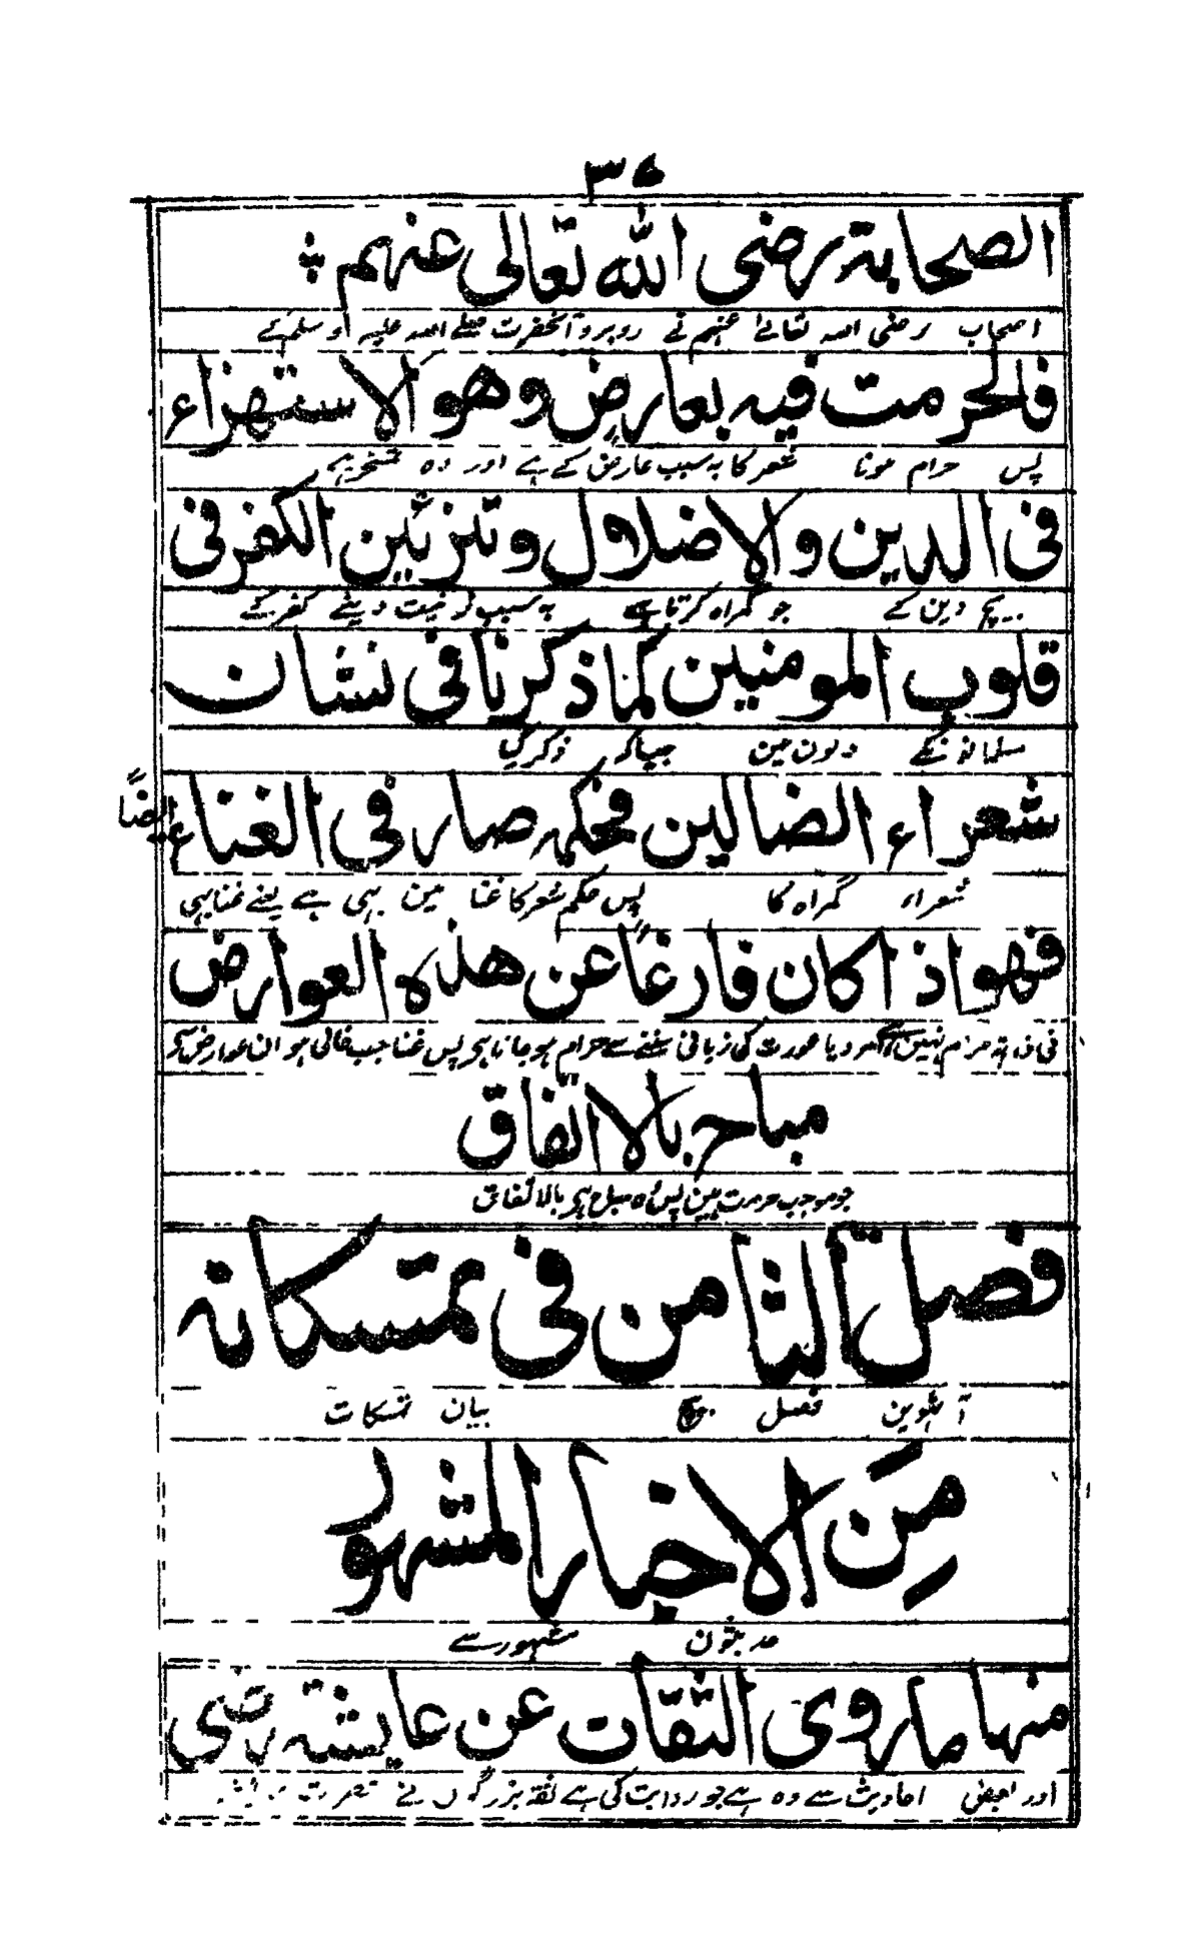 الصحابة رضى الله تعالى عنهم
اصحاب رضی اللہ تعالیٰ عنہم نے روبرو آنحضرت صلے اللہ علیہ و سلم کے
فالحرمت فيه بعارض وهو الاستهزاء
پس حرام ہونا شعر کا بہ سبب عارض کے ہے اور وہ تمسخر ہے
فى الدين والاضلال وتزئين الكفر فى
بیچ دین کے جو گمراہ کرتا ہے بہ سبب زینت دینے کفر کے
قلوب المومنين كما ذكرنا فى نشان
مسلمانونکے دلون مین جیسا کہ ذکر کی
شعراء الضالين فحكمه صار فى الغناء ايضاً
شعراء گمراہ کا پس حکم شعر کا غنا مین یہی ہے یعنے غنا بہی
فهو اذا كان فارغاً عن هذه العوارض
فی ذاتہ حرام نہین ہے دیا عورت کی زبانی سننے سے حرام ہو جاتا ہی پس غنا جب خالی ہو ان عوارض سے
مباح بالاتفاق
جو موجب حرمت ہین پس وہ مباح ہی بالاتفاق
فصل الثامن فى تمسكاته
آٹھوین فصل بیچ بیان تمسکات
مِنَ الاخبار المشهور
حدیثون مشہور سے
منها ما روى الثقات عن عايشة رضى
اور بعضی احادیث سے وہ ہے جو روایت کی ہے ثقہ بزرگون نے حضرت